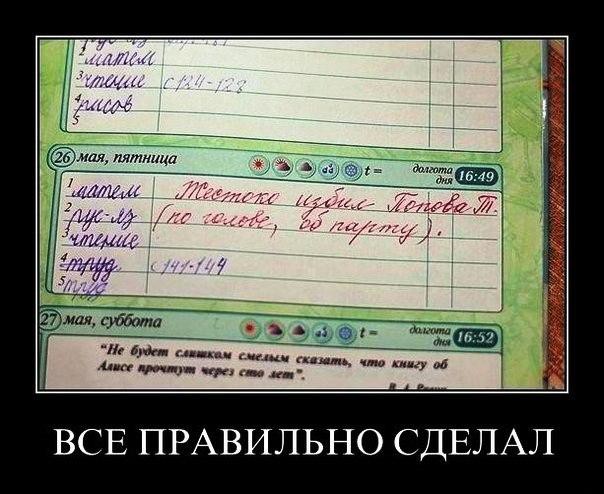 2 матем
3 чтение с 124-128
4 рисов
5
26 мая, пятница t= долгота дня 16:49
1 матем Жестоко избил Попова Т.
2 рус-яз (по голове, об парту).
3 чтение
4 труд с 141-144
5 труд
27 мая, суббота t= долгота дня 16:52
"Не будет слишком смелым сказать, что книгу об
Алисе прочтут через сто лет".
ВСЕ ПРАВИЛЬНО СДЕЛАЛ